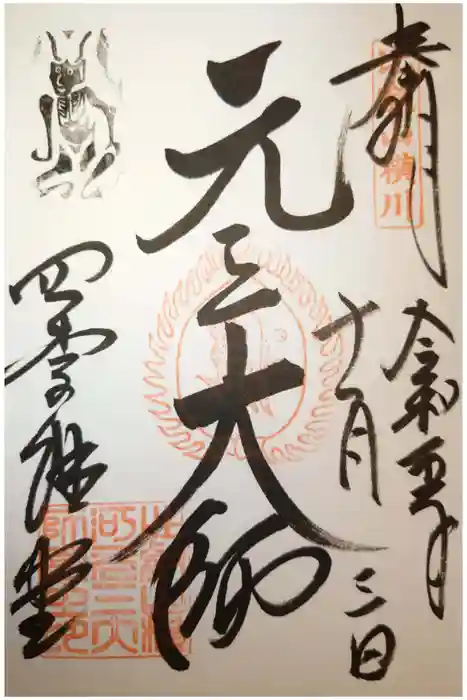 奉拝
比叡山横川
令和五年
十一月三日
元三大師
四季講堂